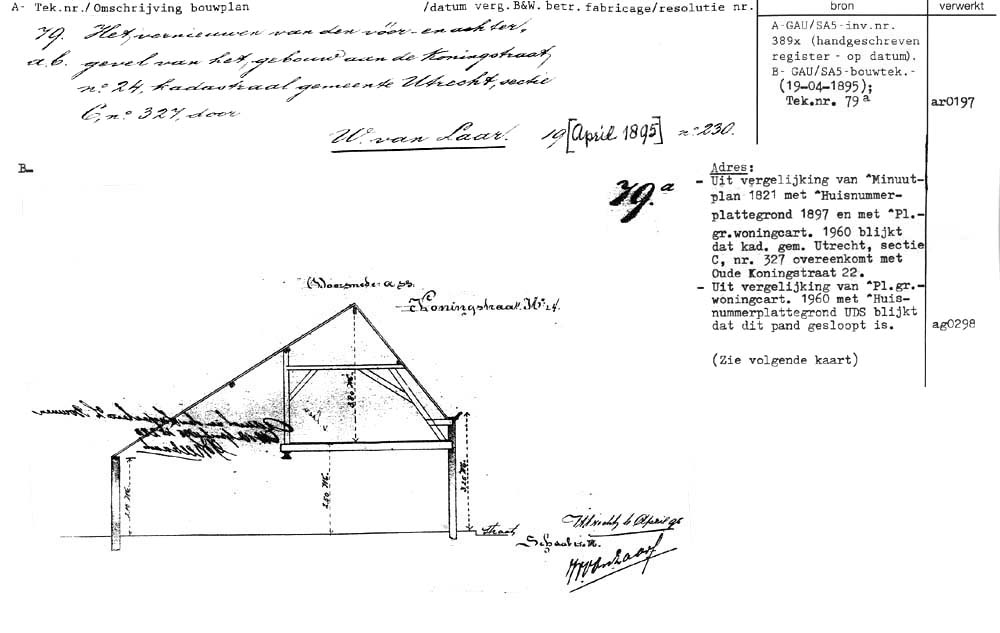 A- Tek.nr./Omschrijving bouwplan /datum verg.B&W. betr. fabricage/resolutie nr. bron verwerkt
79. Het vernieuwen van den voor- en achter,
a, b. gevel van het, gebouw aan de Koningstraat,
nº 24, kadastraal gemeente Utrecht, sectie
C, nº 327, door
W. van Laar. 19 [April 1895] nº 230.
A-GAU/SA5-inv.nr.
389x (handgeschreven
register - op datum).
B- GAU/SA5-bouwtek.-
(19-04-1895);
Tek.nr. 79a
ar0197
B-
79.a
Adres:
- Uit vergelijking van "Minuut-
plan 1821 met "Huisnummer-
plattegrond 1897 en met "Pl.-
gr.woningcart. 1960 blijkt
dat kad. gem. Utrecht, sectie
C, nr. 327 overeenkomt met
Oude Koningstraat 22.
- Uit vergelijking van "Pl.gr.-
woningcart. 1960 met "Huis-
nummerplattegrond UDS blijkt
dat dit pand gesloopt is.
ag0298
(Zie volgende kaart)
Doorsnede a
Koningstraat. Nº 24.
straat
Utrecht April 95
WvanLaar